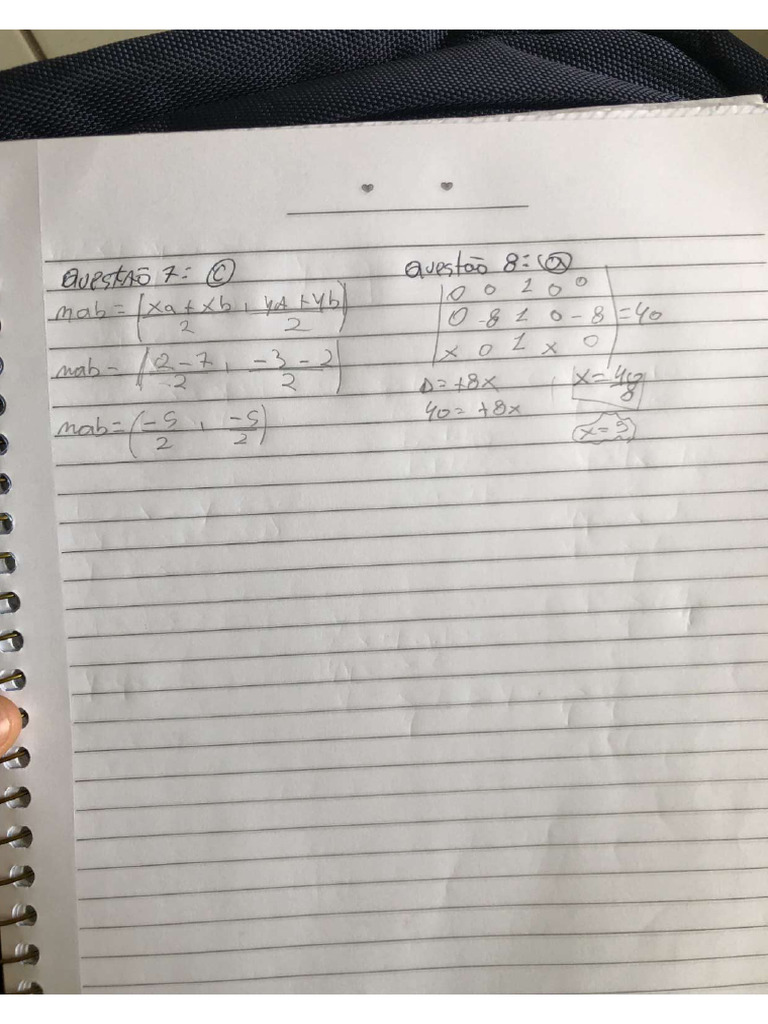 QUESTÃO 7: C
mab = (xa + xb / 2 , yA + yb / 2)
mab = (2 - 7 / 2 , -3 - 2 / 2)
mab = (-5 / 2 , -5 / 2)
Questão 8: a
|0 0 1 0 0|
|0 -8 1 0 -8| = 40
|x 0 1 x 0|
D = +8x
40 = +8x
x = 40 / 8
x = 5